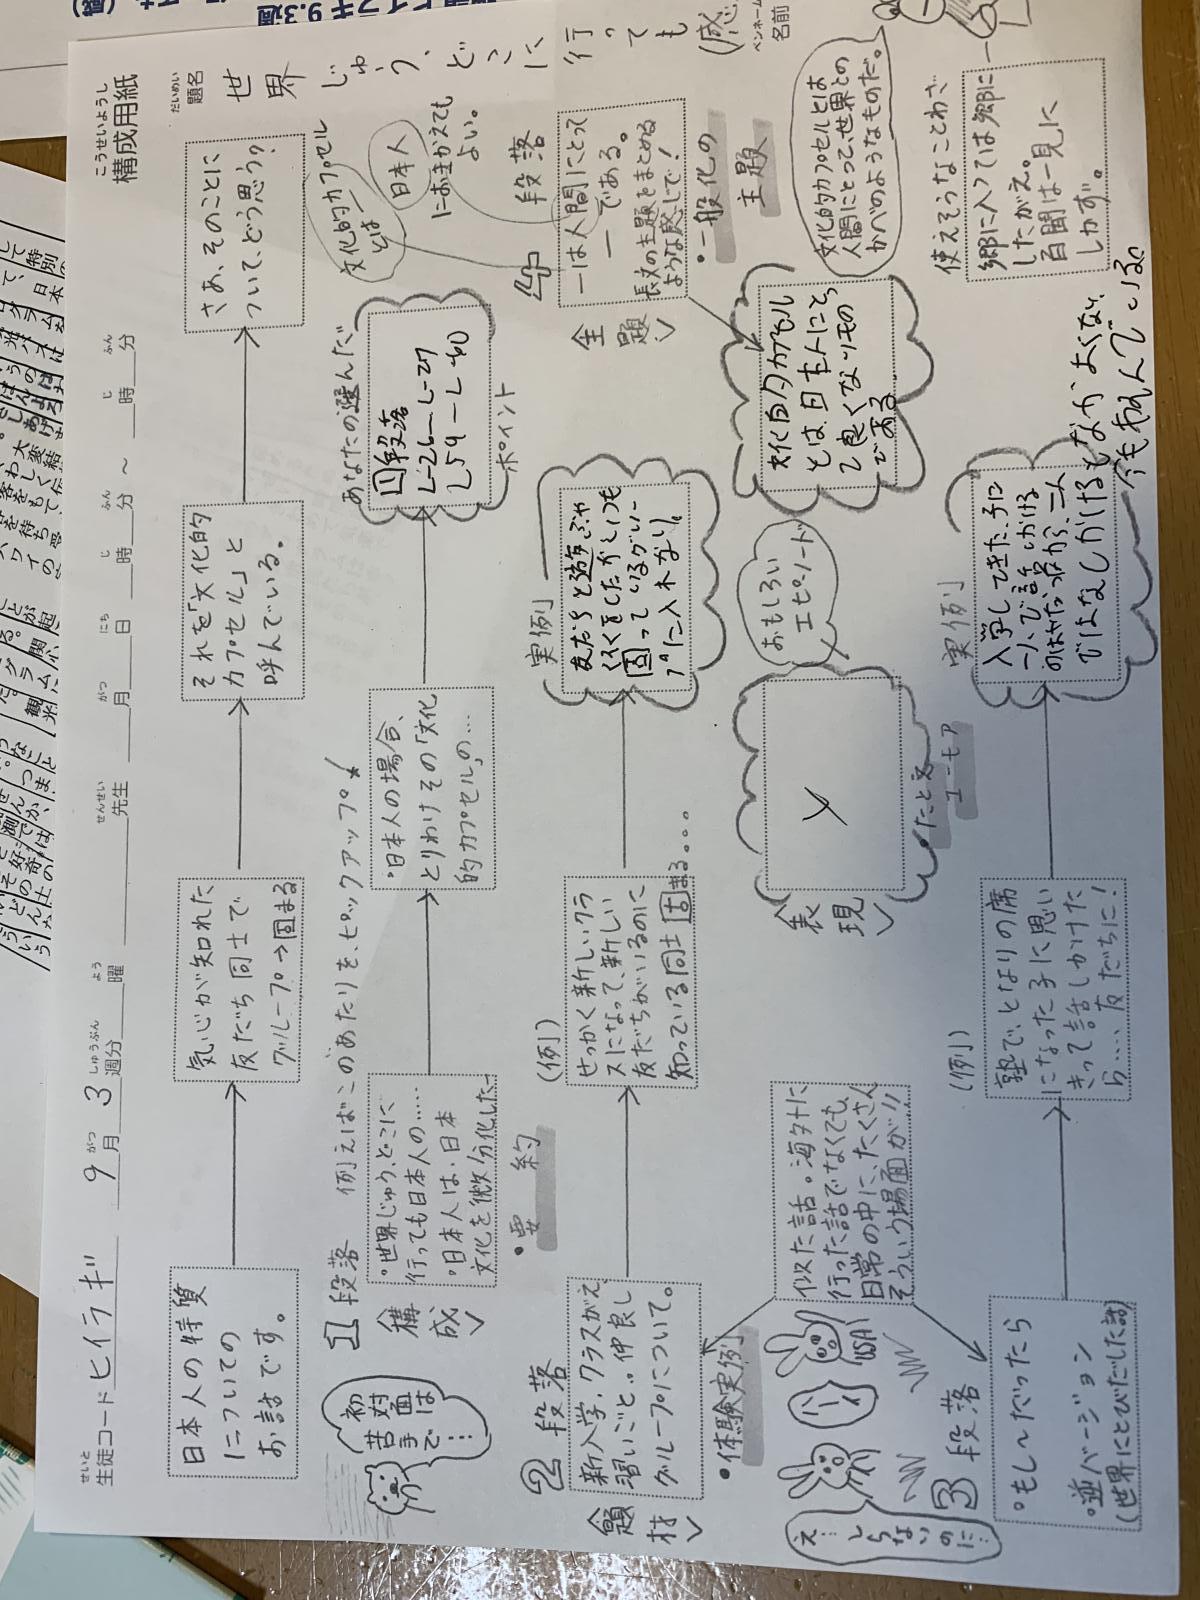 こうせいようし
構成用紙
せいと
生徒コード ヒイラギ 9月 3週分 ___曜 ___先生 ___月___日___時___分～___時___分
だいめい
題名
世界じゅう、どこに行っても(感
ペンネーム
名前
日本人の特質
についての
お話です。
気心が知れた
友だち同士で
グループ→固まる
それを「文化的
カプセル」と
呼んでいる。
さあ、そのことに
ついて、どう思う?
1段落 例えばこのあたりを、ピックアップ!
あなたの選んだ
ポイント
〈構成〉
初対面は
苦手で…
・世界じゅう、どこに
行っても日本人の……
・日本人は、日本
文化を微分化した…
・日本人の場合、
とりわけその「文化
的カプセル」の…
1段落
L-26-L-27
L59-L-60
・要約
文化的カプセル
とは
日本人
におきかえても
よい。
2段落
〈題材〉
新入学、クラスがえ
習いごと‥仲良し
グループについて。
・体験実例
(例)
せっかく新しいクラ
スになって、新しい
友だちがいるのに
知っている同士固まる。。。
実例
友だちと遊ぶや
くそくをしたがいつも
固っているグルー
プに入れない。
4段落
〈主題〉
ーは人間にとって
ーである。
長文の主題をまとめる
ような感じで!
・一般化の
主題
文化的カプセルとは、日本人にとっ
て良くないもの
である
文化的カプセルとは
人間にとって、世界との
かべのようなものだ。
似た話・海外に
行った話でなくても、
日常の中に、たくさん
そういう場面が!!
〈表現〉
たとえ
ユーモア
おもしろい
エピソード
え…
しらない
のに…
ハーイ
USA
3段落
・もし〜だったら
・逆バージョン
(世界にとびだした話)
(例)
塾で、となりの席
になった子に思い
きって話しかけた
ら……、友だちに!
実例
入学してきた子に
一人で話しかける
のはやだったから、二人
ではなしかけるもなかよくない
使えそうなことわざ
郷に入っては郷に
したがえ。
百聞は一見に
しかず。